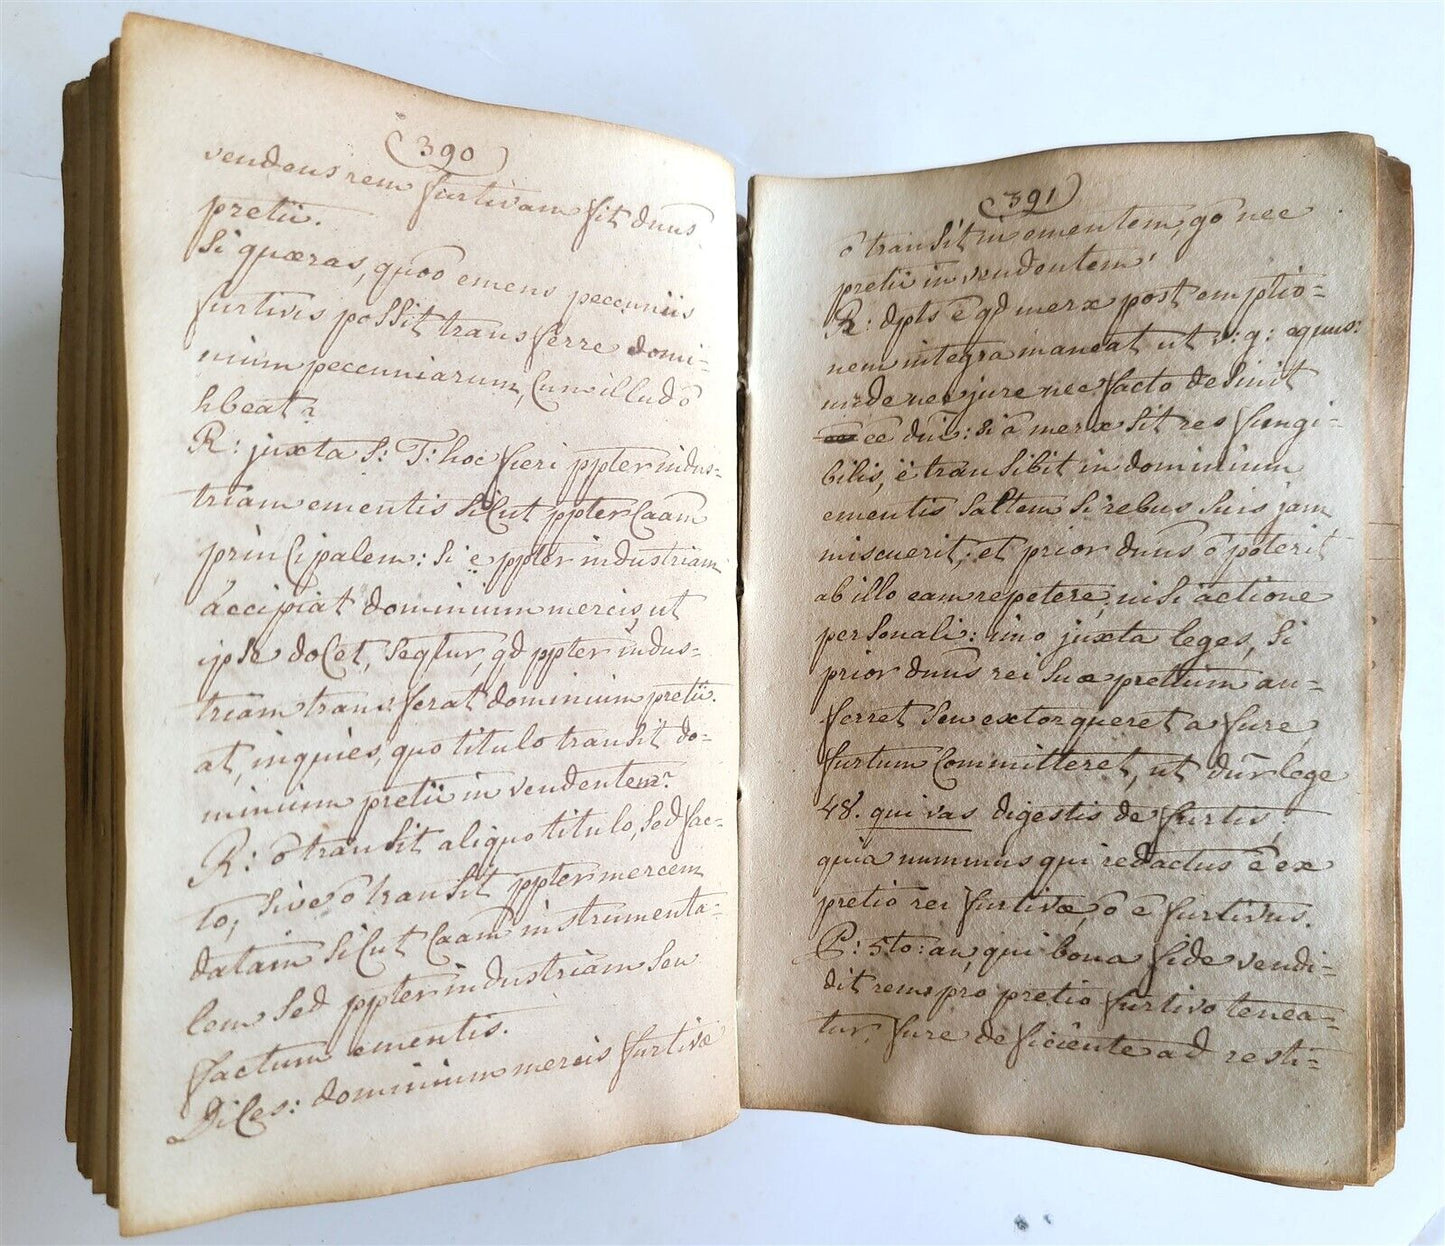 (390)
vendens rem furtivam sit dnus
pretii.
Si quæras, quõo emens pecuniis
furtivis possit transferre domi=
nium pecuniarum, cum illud õ
hbeat?
R: juxta S: T: hoc fieri ppter indus=
triam ementis sicut ppter caam
principalem: Si e ppter industriam
accipiat dominium mercis, ut
ipse docet, seqtur, qd ppter indus=
triam transferat dominium pretii.
at, inquies, quo titulo transit do=
minium pretii in vendentem?
R: õ transit aliquo titulo, sed fac=
to, sive õ transit ppter mercem
datam sicut caam instrumenta=
lem sed ppter industriam seu
factum ementis.
Dices: dominium mercis furtivæ
(391)
õ transit in ementem, gõ nec
pretii in vendentem.
R: dpts ē qd merx post emptio=
nem integra maneat ut v: g: equus:
unde nec jure nec facto desinit
ēē dni: si ā merx sit res fungi=
bilis, ē transibit in dominium
ementis saltem si rebus suis jam
miscuerit, et prior dnus õ poterit
ab illo eam repetere, nisi actione
personali: imo juxta leges, si
prior dnus rei suæ prettium au=
ferret seu extorqueret a fure,
furtum committeret, ut dur lege
48. qui vas digestis de furtis,
quia nummus qui redactus ē ex
pretio rei furtivæ, õ ē furtivus.
P: 5to: an, qui bona fide vendi=
dit rem pro pretio furtivo tenea=
tur, fure deficiente ad resti=